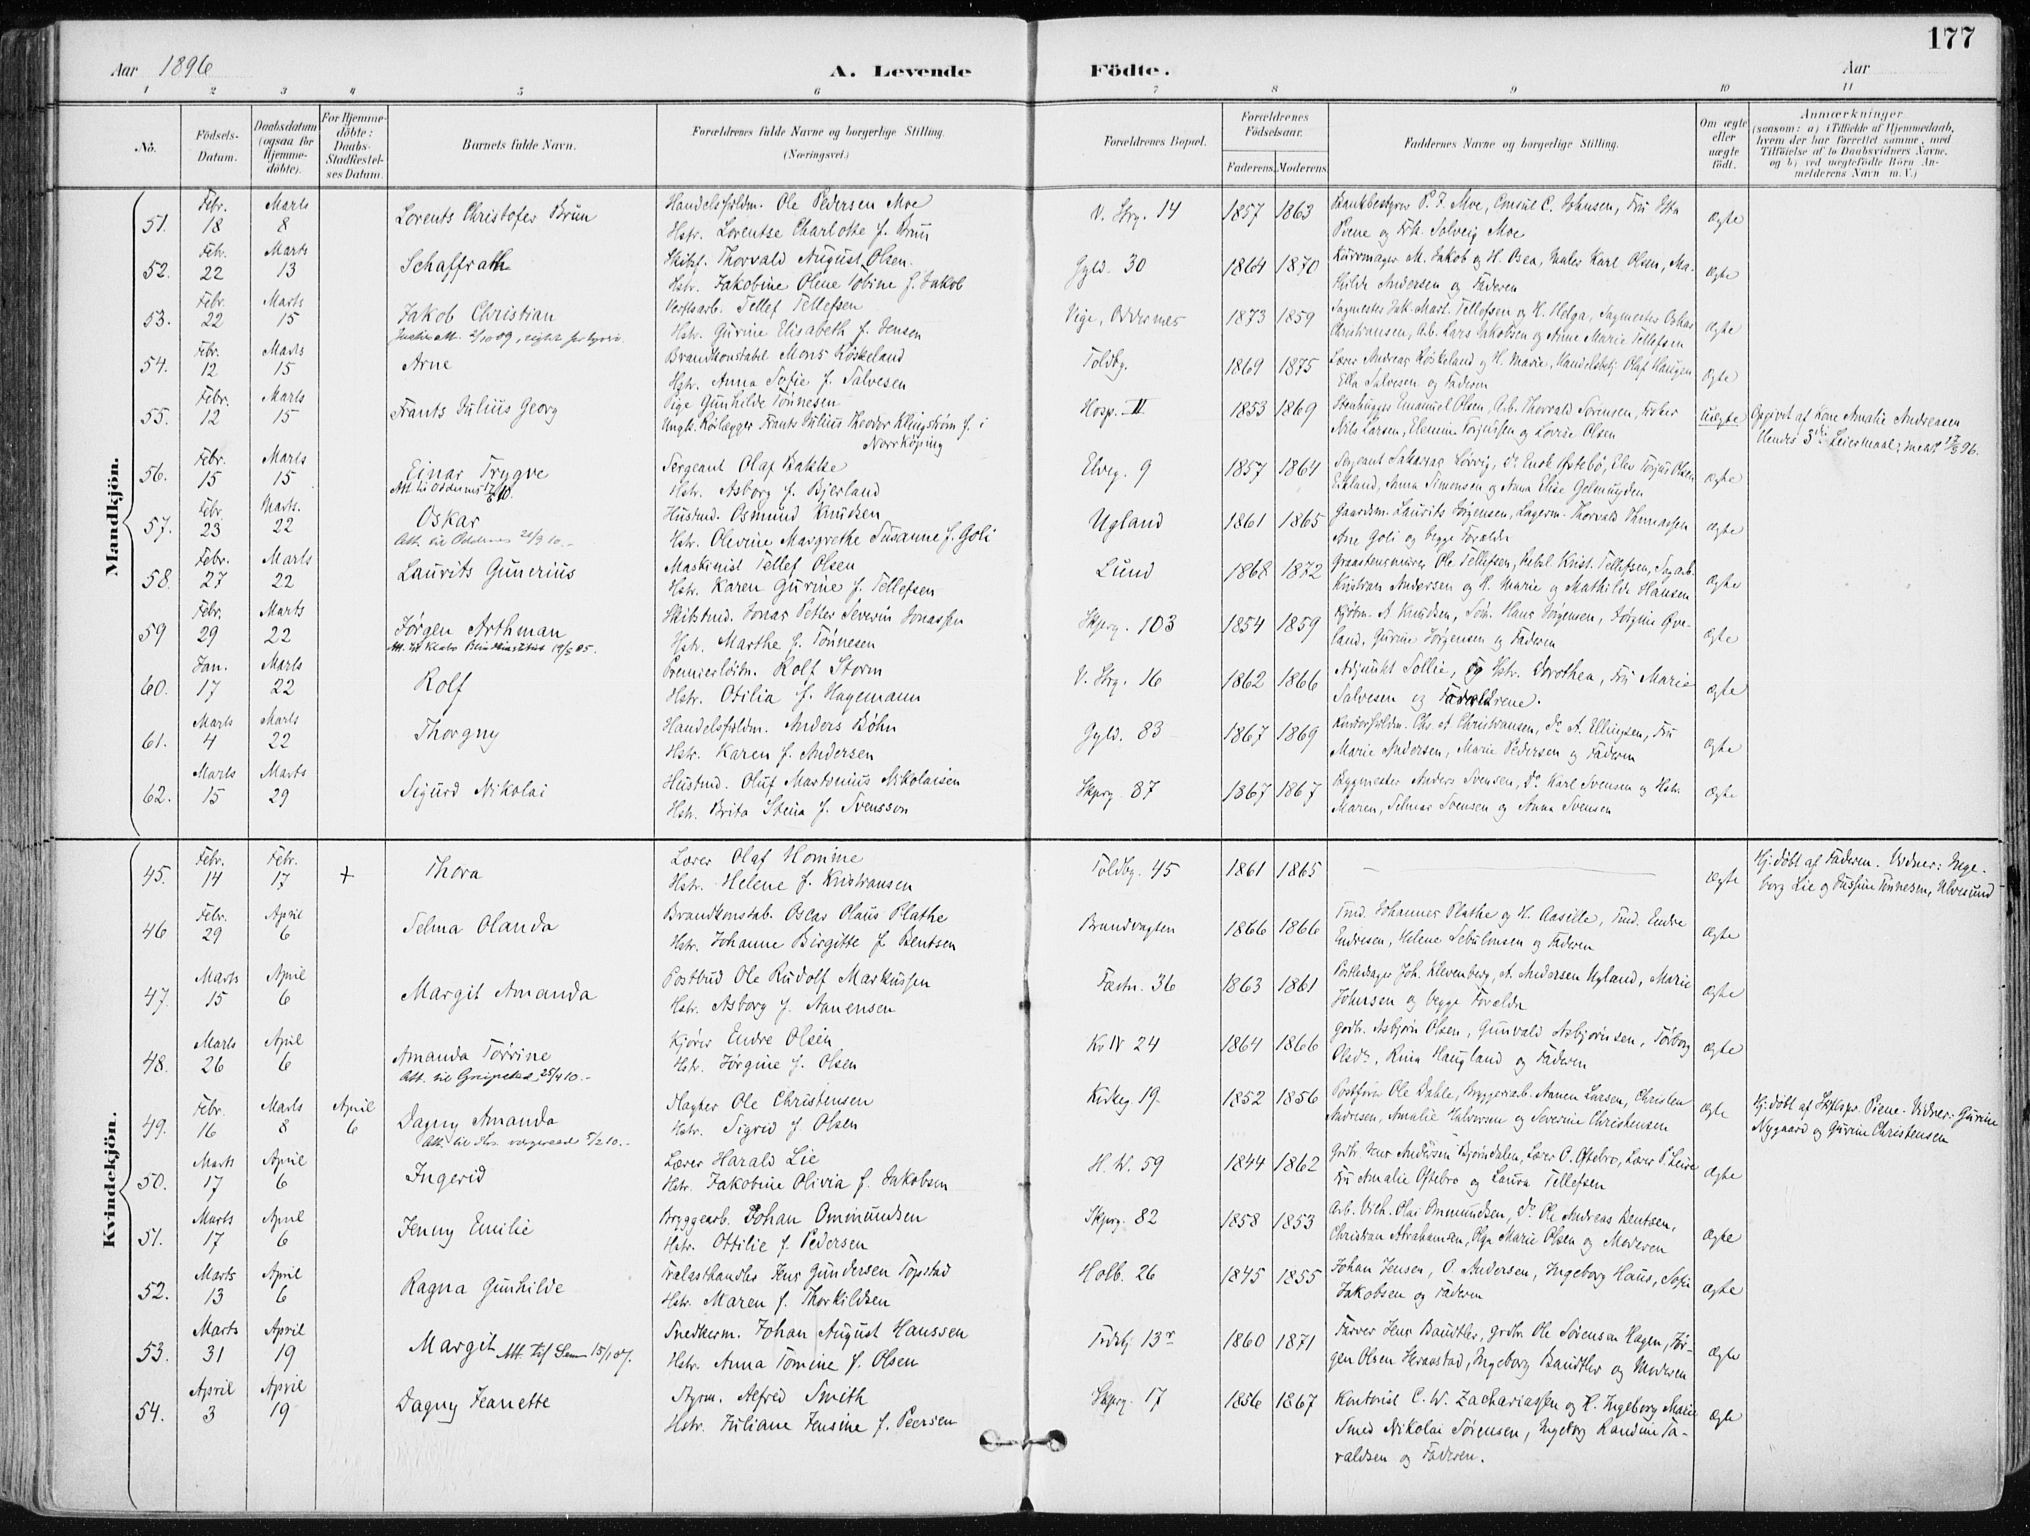 177
Aar 1896
A. Levende Födte.
Aar
1 2 3 4 5 6 7 8 9 10 11
No. Födsels-Datum. Daabsdatum (ogsaa for Hjemme-döbte). For Hjemme-döbte: Daabs-Stadfæstel-ses Datum. Barnets fulde Navn. Forældrenes fulde Navne og borgerlige Stilling. (Næringsvei.) Forældrenes Bopæl. Forældrenes Födselsaar. Faderens. Moderens. Faddernes Navne og borgerlige Stilling. Om ægte eller uægte födt. Anmærkninger (saasom: a) i Tilfælde af Hjemmedaab, hvem der har forrettet samme, med Tilföielse af to Daabsvidners Navne, og b) ved uægtefödte Börn An-melderens Navn m. V.)
Mandkjön.
51. Febr. 18 Marts 8 Lorents Christofer Brun Handelsfuldm. Ole Pedersen Moe
Hstr. Lorentse Charlotte f. Brun V. Strg. 14 1857 1863 Bankbestyrer P. J. Moe, Consul C. Johnsen, Fru
Piene og Frk. Solveig Moe ægte
52. Febr. 22 Marts 13 Schaffrath Skibsf. Thorvald August Olsen
Hstr. Jakobine Olene Tobine f. Jakob Gyld. 30 1864 1870 M. Jakob og H. Maler Karl Olsen, Ma-
thilde Andersen og Faderen ægte
53. Febr. 22 Marts 15 Jakob Christian Verftsarb. Tellef Tellefsen
Hstr. Gurine Elisabeth f. Jensen Vige, Oddernes 1873 1859 Sagmester Jak. Mart. Tellefsen og H. Helga, Sagmester Oskar
Christiansen, Arb. Lars Jakobsen og Anne Marie Tellefsen ægte
54. Febr. 12 Marts 15 Arne Brandkonstabel Mons Röskeland
Hstr. Anna Sofie f. Salvesen Toldbg. 1869 1875 Lærer Andreas Röskeland og H. Marie, Handelsbetj. Olaf Haugen
Ella Salvesen og Faderen ægte
55. Febr. 12 Marts 15 Frants Julius Georg Pige Gunhilde Tönnesen
Ungk. Rörlægger Frants Julius Theodor Klingström f. i
Norrköping Hosp. II 1853 1869 Stenhugger Emanuel Olsen, Arb. Thorvald Sörensen, Fisker
Nils Larsen, Elemine Torjussen og Lovise Olsen uægte Opgivet af Kone Amalie Andreasen
Hendes 3die Leiermaal; meldt 17/3 96.
56. Febr. 15 Marts 15 Einar Trygve Sergeant Olaf Bakke
Att. til Oddernes Hstr. Asborg f. Bjerland Elveg. 9 1857 1864 Sergeant Sakarias Lövvig, Do Enok Östebö, Elev Torjus Olsen
Eikland, Anna Simonsen og Anna Elise Gelmuyden ægte
57. Febr. 23 Marts. 22 Oskar Husmd. Osmund Knudsen
Att. til Oddernes 21/3 10. Hstr. Olevine Margrethe Susanne f. Goli Ugland 1861 1865 Gaardm. Laurits Jörgensen, Lagerm. Thorvald Hannassen
Ane Goli og begge Foreldr ægte
58. Febr. 27 Marts 22 Laurits Gunerius Maskinist Tellef Olsen
Hstr. Karen Gurine f. Tellefsen Lund 1868 1872 Graastensmurer Ole Tellefsen, Krist. Tellefsen, Sagarb.
Kristian Andersen og H. Marie og Mathilde Hansen ægte
59 Febr. 29 Marts 22 Jörgen Arthman Skibstmd. Jonas Petter Severin Jonassen
Hstr. Marthe f. Tönnesen Skprg. 103 1854 1859 Kjöbm. A Knudsen, Söm. Hans Jörgensen, Jörgine Öve-
land, Gurine Jörgensen og Faderen ægte
60. Jan. 17 Marts 22 Rolf Premierlöitn. Rolf Storm
Hstr. Otilia f. Hagemann V. Strg. 16 1862 1866 Adjunkt Sollie, og Hstr. Dorothea, Fru Marie
Salvesen og Forældrene. ægte
61. Marts 4 Marts 22 Thorgny Handelsfuldm. Anders Böhn
Hstr. Karen f. Andersen Gyld. 83 1867 1869 Kontorfuldm. Chr. A Christiansen, Do A. Ellingsen, Fru
Marie Andersen, Marie Pedersen og Faderen ægte
62. Marts 15 Marts 29 Sigurd Nikolai Hustmd. Oluf Martinius Nikolaisen
Hstr. Brita Stina f. Svensson Skprg. 87 1867 1867 Bygmester Anders Svensen, Do Karl Svensen og Hstr.
Maren, Selmar Svensen og Anna Svensen ægte
Kvindekjön.
45. Febr. 14 Febr. 17 + Thora Lærer Olaf Homme
Hstr. Helene f. Kristiansen Toldbg. 45 1861 1865 — ægte Hj. döbt af Faderen. Vidner: Inge-
borg Lie og Tönnesen, Ulvesund
46 Febr. 29 April 6 Selma Olanda Brandkonstab. Oscar Olaus Plathe
Hstr. Johanne Birgitte f Bentsen Brandvagten 1866 1866 Tmd. Johannes Plathe og H. Aasille, Tmd. Endre
Endresen, Helene og Faderen ægte
47. Marts 15 April 6 Margit Amanda Postbud Ole Rudolf Markussen
Hstr. Asborg f. Aanensen Fæstn. 36 1863 1861 Postledsager Joh. Klevenberg, A. Andersen Ugland, Marie
Johnsen og begge Foreldr ægte
48. Marts 26 April 6 Amanda Torrine Kjörer Endre Olsen
Att. til Grimstad 25/4 10. Hstr. Jörgine f. Olsen Kv IV 24 1864 1866 Gdbr. Asbjörn Olsen, Gunvald Asbjörnsen, Torborg
Olsdr, Rina Haugland og Faderen ægte
49. Febr. 16 Marts 8 April 6 Dagny Amanda Slagter Ole Christensen
Hstr. Sigrid f. Olsen Kirkeg. 19 1852 1856 Postförer Ole Dahle, Bryggeriarb. Aanen Larsen, Christen
Andresen, Amalie Halvorsen og Severine Christensen ægte Hj. döbt af Piene. Vidner: Gurine
Nygaard og Gurine Christensen
50. Marts 17 April 6 Ingerid Lærer Harald Lie
Hstr. Jakobine Olivia f. Jakobsen H. W. 59 1844 1862 Gdbr. Andersen Björndalen, Lærer O. Oftebro, Lærer P. Leire
Fru Amalie Oftebro og Laura Tellefsen ægte
51. Marts 17 April 6 Jenny Emilie Bryggearb. Johan Ommundsen
Hstr. Ottilie f. Pedersen Skprg. 82 1858 1853 Arb. Olai Ommundsen, Do Ole Andreas Bentsen,
Christian Abrahamsen, Olga Marie Olsen og Moderen ægte
52. Marts 13 April 6 Ragna Gunhilde Trælasthandler Jens Gundersen Topstad
Hstr. Maren f. Thorkildsen Holb. 26 1845 1855 Johan Jensen, O. Andersen, Ingeborg Haus, Sofie
Jakobsen og Faderen ægte
53. Marts 31 April 19 Margit Att. til Sem 15/1 07. Snedkerm. Johan August Hanssen
Hstr. Anna Tomine f. Olsen 13 1860 1871 Farver Jens Baudtler, Grdbr. Ole Sörensen Hagen, Jör-
gen Olsen Heranstad, Ingeborg Baudtler og Moderen ægte
54. April 3 April 19 Dagny Jeanette Styrm. Alfred Smith
Hstr. Juliane Jensine f. Peersen Skprg. 17 1856 1867 Kontorist C. W. Zachariassen og H. Ingeborg Marie
Smed Nikolai Sörensen, Ingeborg Randine To-
valdsen og Faderen. ægte